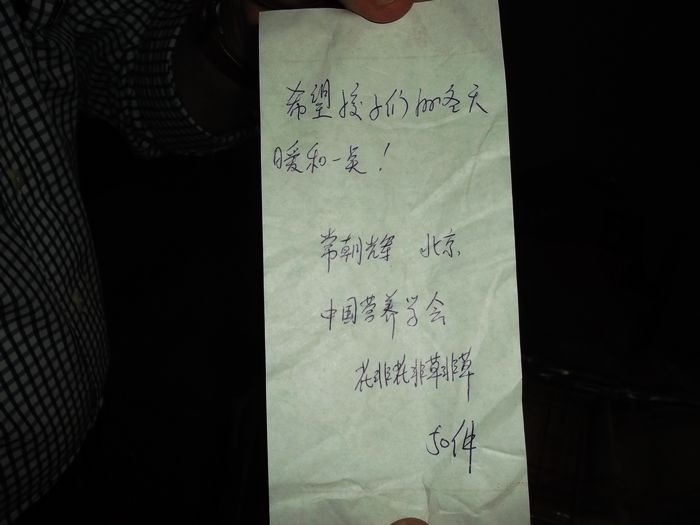 希望孩子们的冬天
暖和一点！
常朝辉 北京
中国营养学会
花非花非草非草
50件